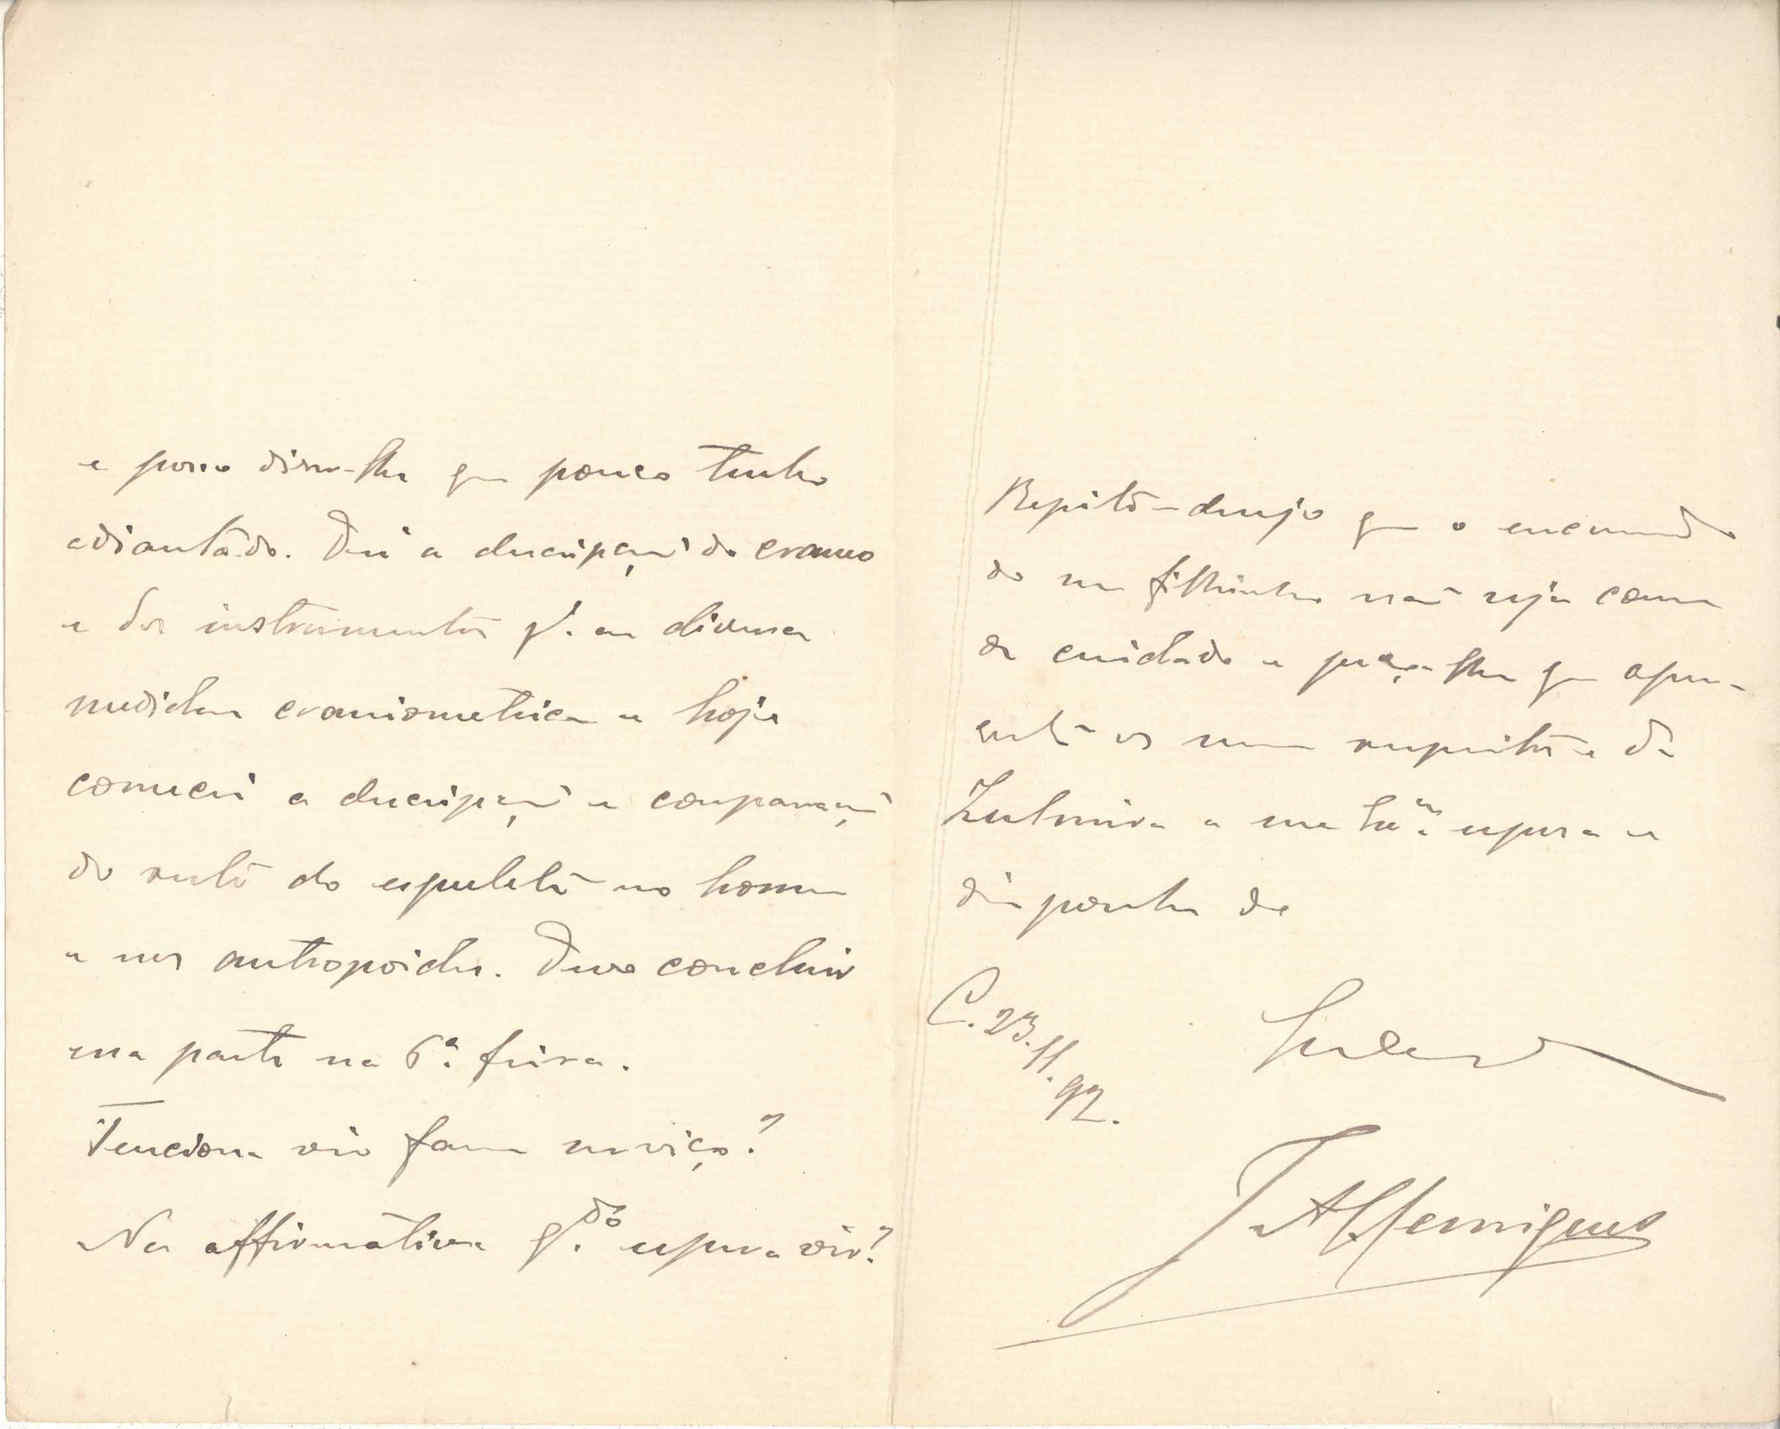 e posso dizer-lhe que pouco tenho
adiantado. Dei a descripção do craneo
e dos instrumentos p.ª as diversas
medidas craniometricas e hoje
comecei a descripção e comparação
do resto do esqueleto no homem
e nos antropoides. Devo concluir
essa parte na 6.ª feira.
Tenciona vir fazer serviço?
No affirmativa q.do espera vir?
Repito - desejo que o encommodo
do seu filhinho não seja cousa
de cuidado e peço-lhe que apre-
sente os meus respeitos a D.
Zulmira e me creia sempre a
disponha de
C. 23.11.92.
J A Henriques